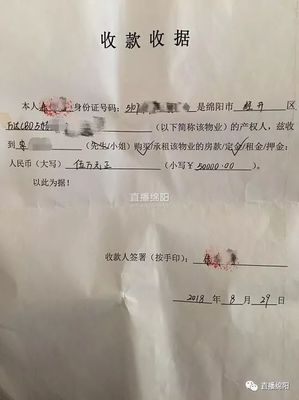 收款收据
本人 身份证号码：510 是绵阳市 经开 区
CBD5栋 （以下简称该物业）的产权人，兹收
到 （先生/小姐）购买/承租该物业的房款/定金/租金/押金：
人民币（大写） 伍万元正 （小写￥50000.00）
以此为据！
直播绵阳
收款人签署（按手印）：
2018 年 8 月 29 日
直播绵阳